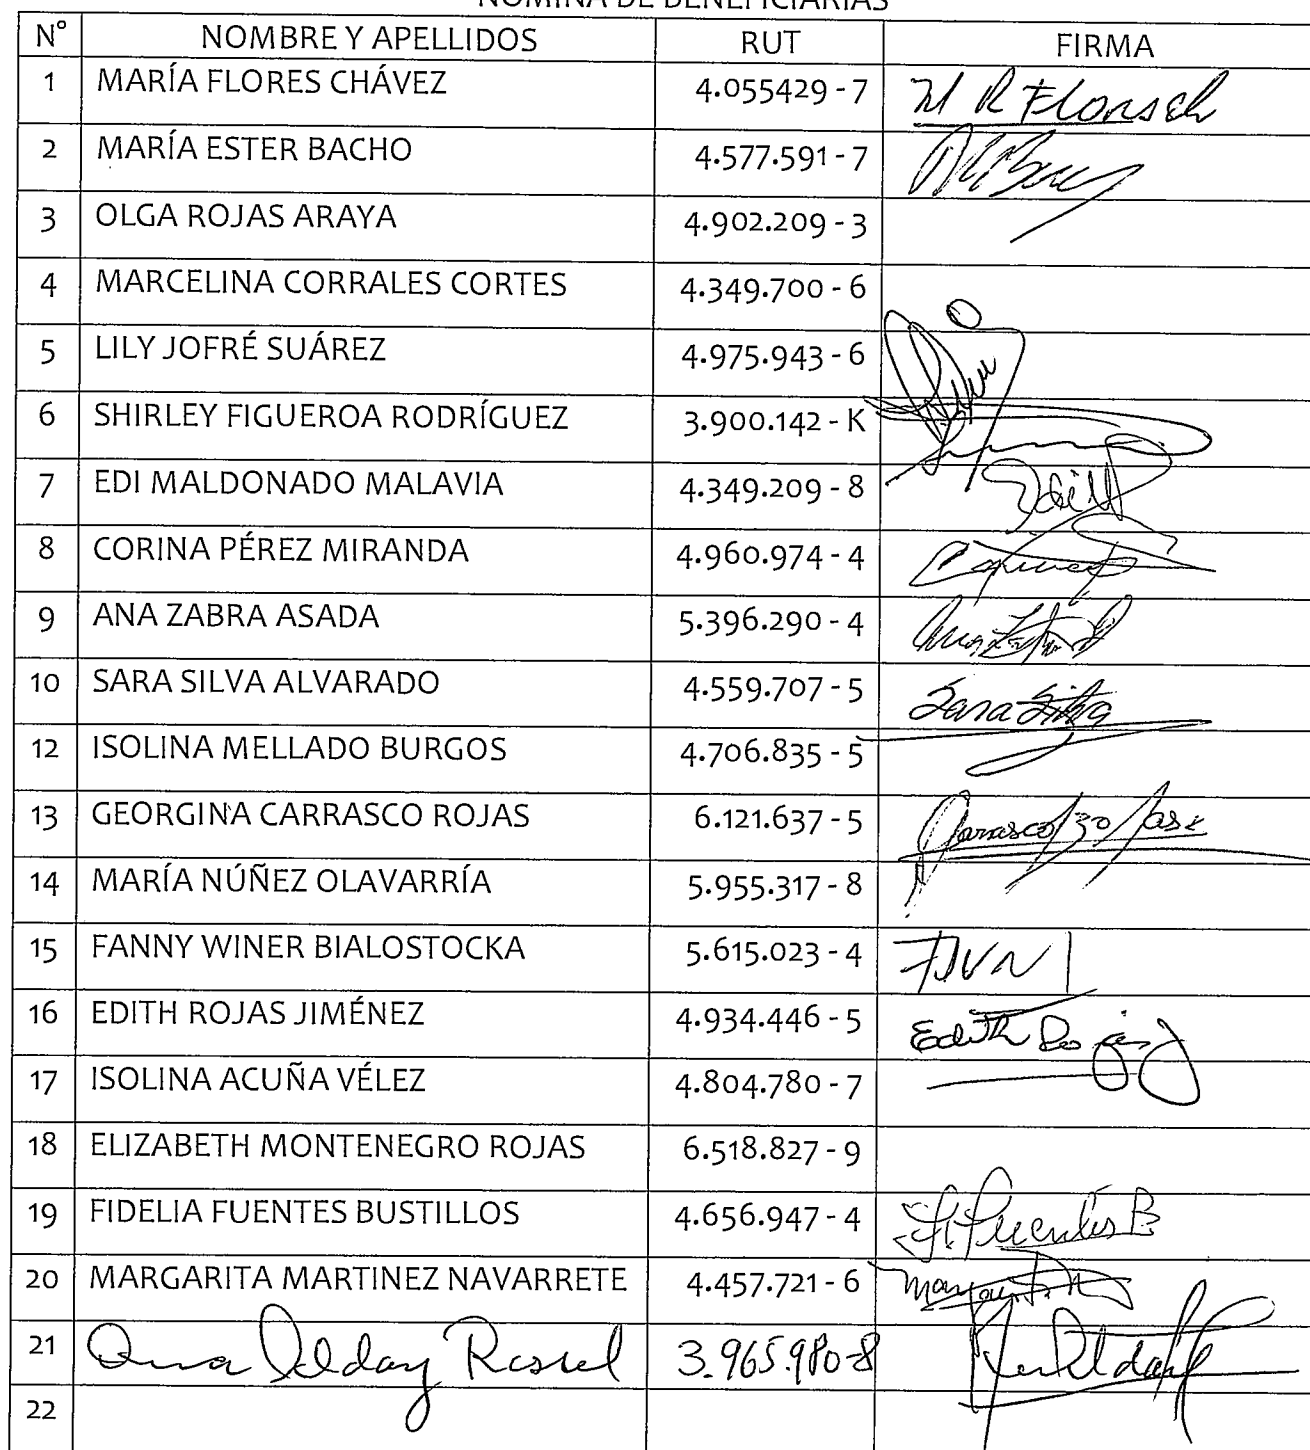 NÓMINA DE BENEFICIARIAS
N° NOMBRE Y APELLIDOS RUT FIRMA
1 MARÍA FLORES CHÁVEZ 4.055429 - 7 M R Flores Ch
2 MARÍA ESTER BACHO 4.577.591 - 7
3 OLGA ROJAS ARAYA 4.902.209 - 3
4 MARCELINA CORRALES CORTES 4.349.700 - 6
5 LILY JOFRÉ SUÁREZ 4.975.943 - 6
6 SHIRLEY FIGUEROA RODRÍGUEZ 3.900.142 - K
7 EDI MALDONADO MALAVIA 4.349.209 - 8
8 CORINA PÉREZ MIRANDA 4.960.974 - 4
9 ANA ZABRA ASADA 5.396.290 - 4
10 SARA SILVA ALVARADO 4.559.707 - 5 Sara Silva
12 ISOLINA MELLADO BURGOS 4.706.835 - 5
13 GEORGINA CARRASCO ROJAS 6.121.637 - 5
14 MARÍA NÚÑEZ OLAVARRÍA 5.955.317 - 8
15 FANNY WINER BIALOSTOCKA 5.615.023 - 4
16 EDITH ROJAS JIMÉNEZ 4.934.446 - 5 Edith Rojas
17 ISOLINA ACUÑA VÉLEZ 4.804.780 - 7
18 ELIZABETH MONTENEGRO ROJAS 6.518.827 - 9
19 FIDELIA FUENTES BUSTILLOS 4.656.947 - 4 F. Fuentes B
20 MARGARITA MARTINEZ NAVARRETE 4.457.721 - 6
21 Alday 3.965.980-8
22